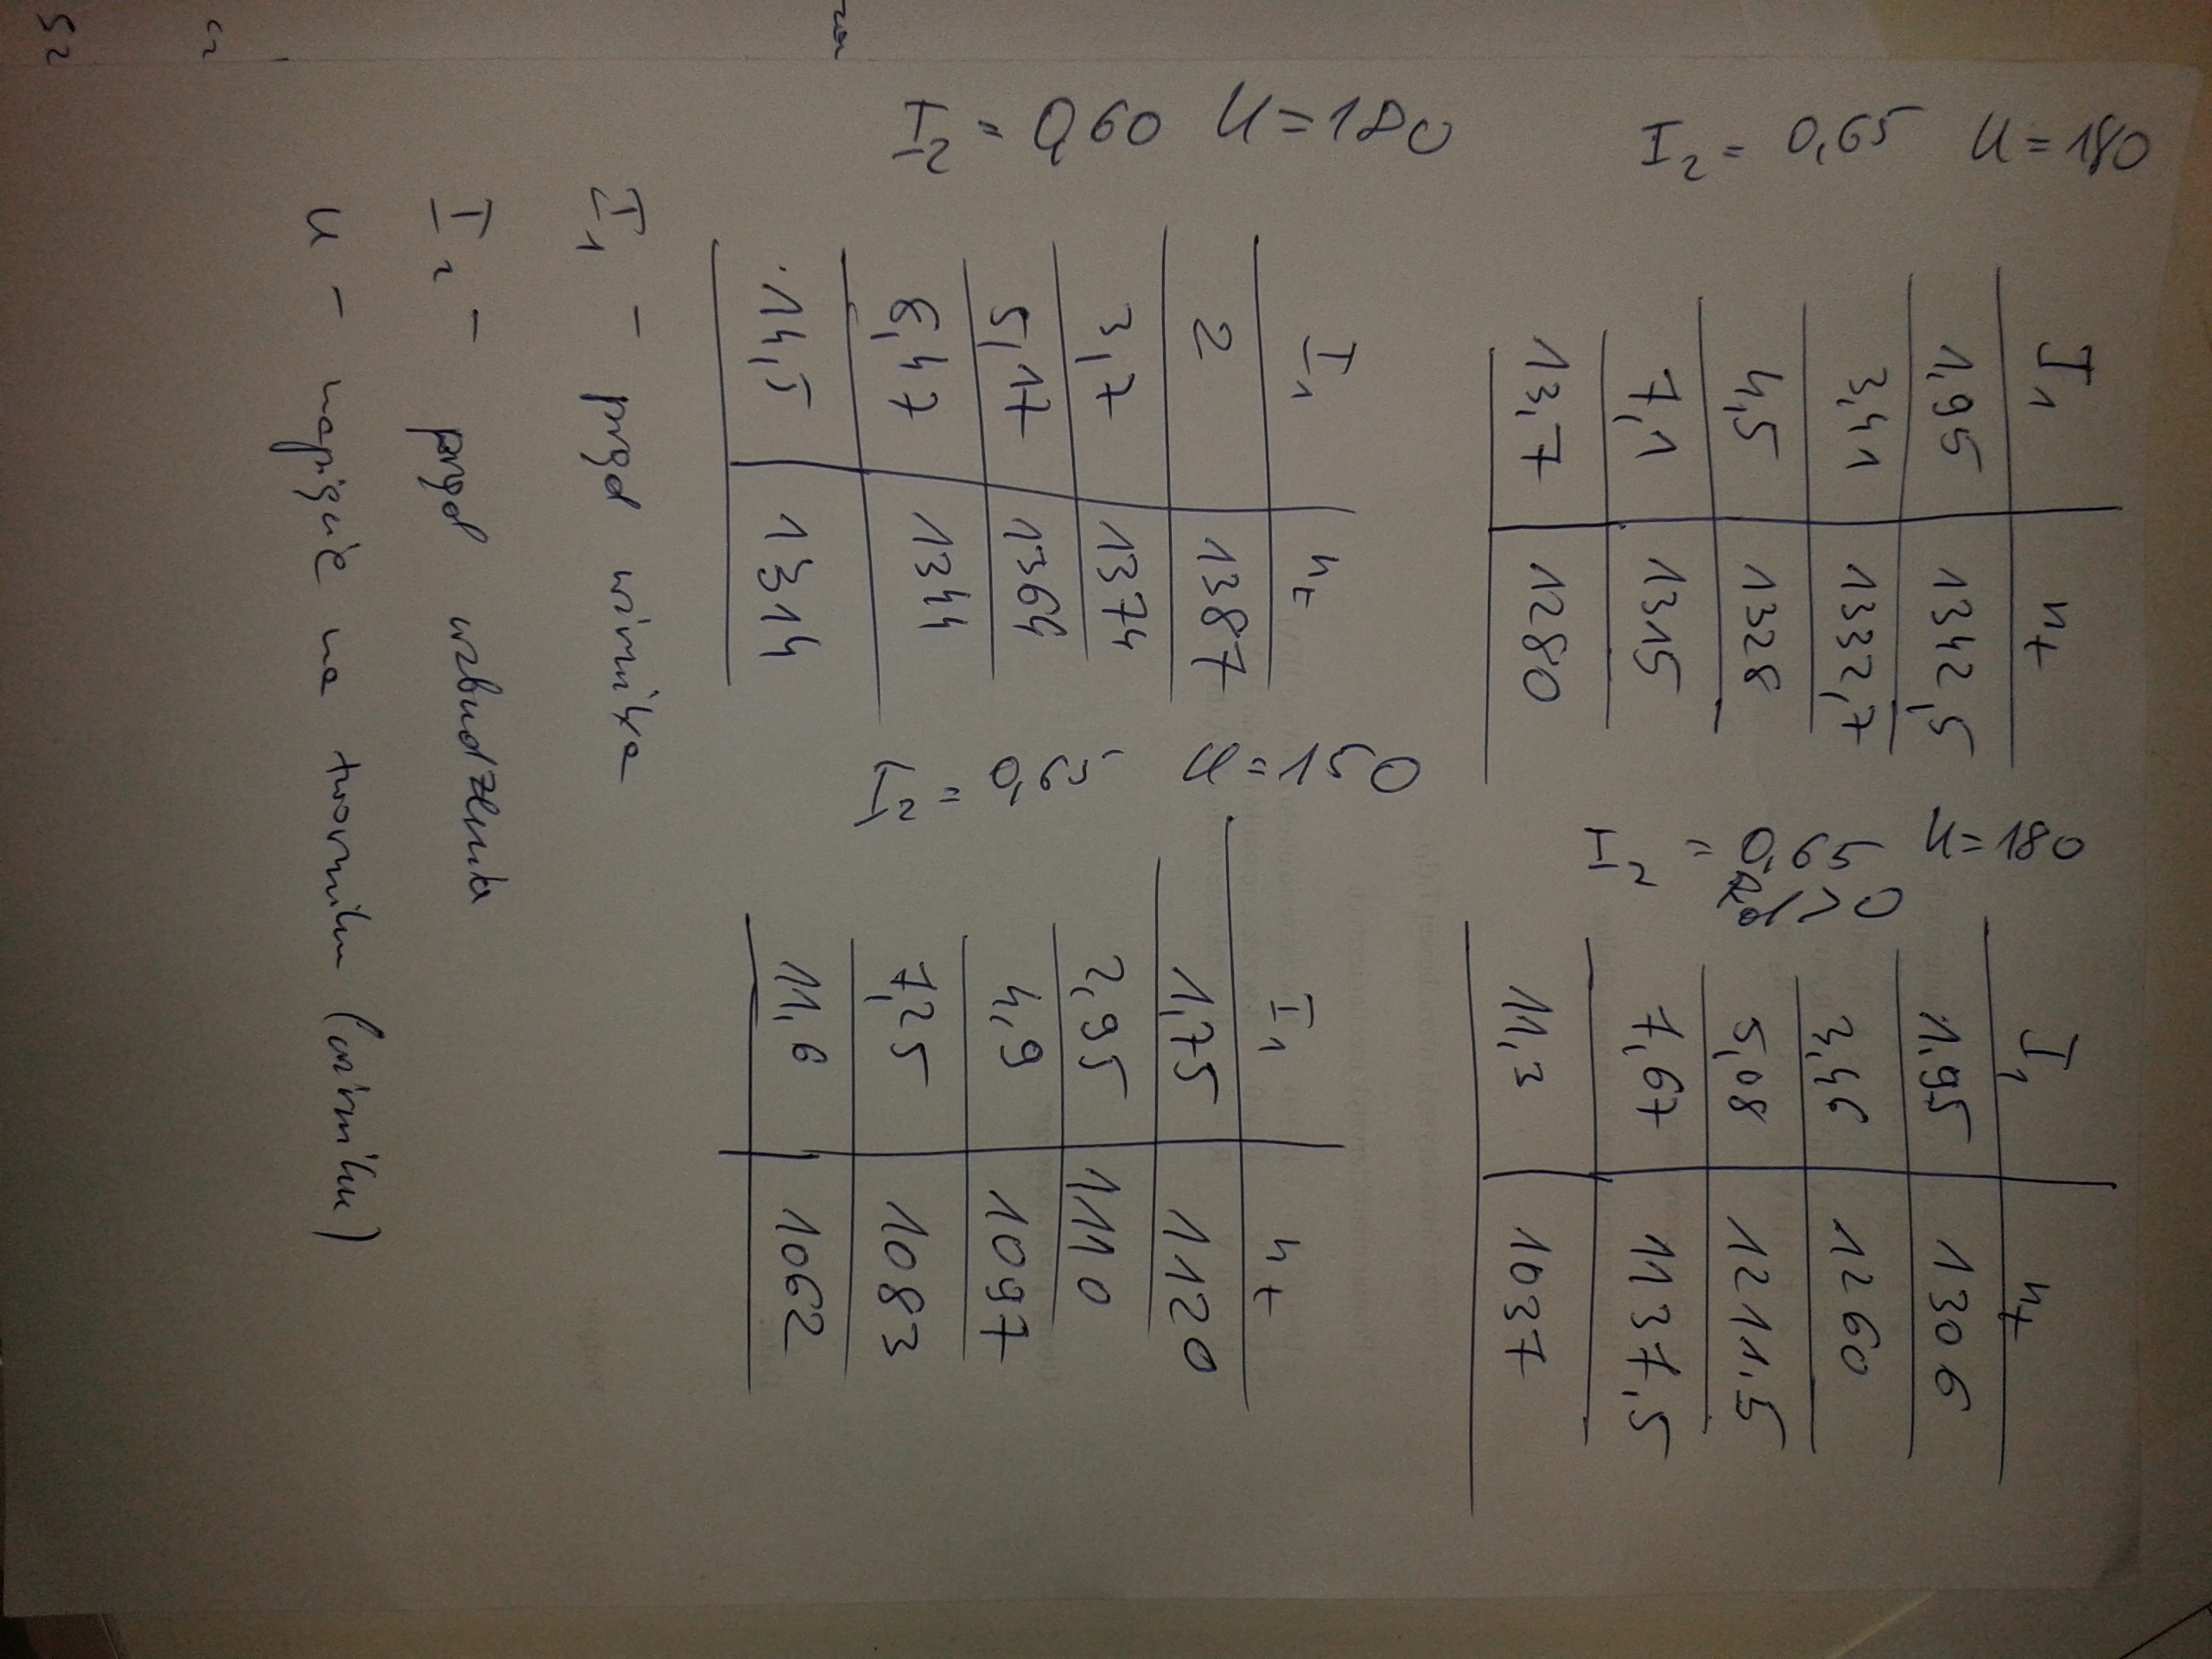 U = 180
I₂ = 0,65
I₁ nₜ
1,95 1342,5
3,41 1332,7
4,5 1328
7,1 1315
13,7 1280
U = 180
I₂ =
I₁ nₜ
1,95 1306
3,46 1260
5,08 1211,5
7,67 1137,5
11,3 1037
U = 180
I₂ = 0,60
I₁ nₜ
2 1387
3,7 1374
5,17 1364
8,47 1344
14,5 1314
U = 150
I₂ =
I₁ nₜ
1,75 1120
2,95 1110
4,9 1097
7,25 1083
11,6 1062
I₁ - prąd wirnika
I₂ - prąd wzbudzenia
U - napięcie na tworniku (wirniku)